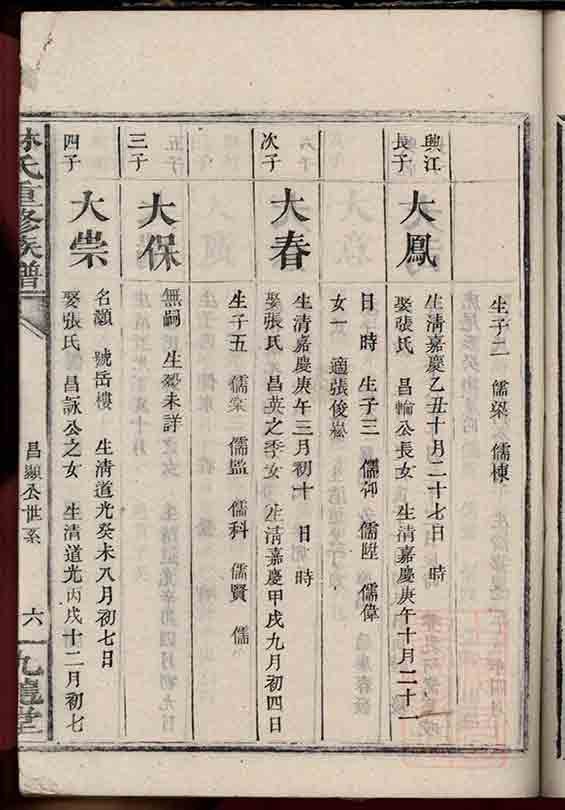 生子二 儒梁 儒棟
興江
長子
大鳳
生清嘉慶乙丑十月二十七日 時
娶張氏 昌輪公長女 生清嘉慶庚午十月二十一
日 時 生子三 儒仰 儒陞 儒偉
女一 適張俊崧
次子
大春
生清嘉慶庚午三月初十 日 時
娶張氏 昌英之季女 生清嘉慶甲戌九月初四日
生子五 儒棠 儒監 儒科 儒賢 儒
三子
大保
無嗣 生歿未詳
四子
大崇
名灝 號岳樓 生清道光癸未八月初七日
娶張氏 昌詠公之女 生清道光丙戌十二月初七
林氏重修族譜
昌顯公世系
六
九龍堂